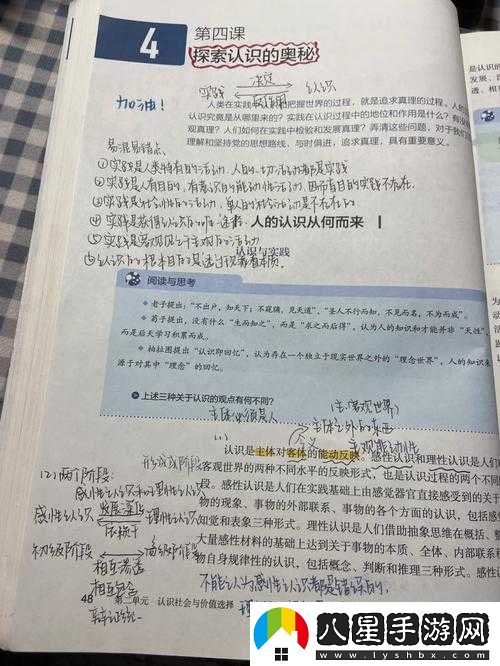 4
第四课
探索认识的奥秘
决定
实践
认识
加油!
人类在实践中
把握世界的过程,就是追求真理的过程。人的
认识究竟是从哪里来的?实践在认识过程中的地位和作用是什么?有没
观真理?人们如何在实践中检验和发展真理?弄清这些问题,对于我们
理解和坚持党的思想路线、与时俱进,追求真理,具有重要意义。
是认识的
发展、
透、相
易混易错点
①实践是人类特有的活动,人的一切活动都是实践
②实践是有目的、有意识的能动性活动,因而盲目的实践不存在.
③实践是社会性的活动,单个人的
活动是不存在的
④实践是
人的认识从何而来
⑤实践是客观见之于主观的活动
⑥认识的根本目的是透过现象看本质.
认识与实践
阅读与思考
老子提出:“不出户,知天下;不窥牖,见天道”,“圣人不行而知,不见而名,不为而成”。
荀子提出,没有什么“生而知之”,而是“求之而后得”,认为人的知识和才能并非“天性”,
而是后天学习积累而成。
柏拉图提出“认识即回忆”,认为存在一个独立于现实世界之外的“理念世界”,人的知识来
源于对其中“理念”的回忆。
上述三种关于认识的观点有何不同?
主体必须是人
(客观世界)
(1)
含义
主体之外的东西
主观能动性
认识是主体对客体的能动反映。感性认识和理性认识是人们
客观世界的两种不同水平的反映形式,也是认识过程的两个不同
段。感性认识是人们在实践基础上由感觉器官直接感受到的关于
物的现象、事物的外部联系、事物的各个方面的认识,包括感
知觉和表象三种形式。理性认识是人们借助抽象思维在概括、整
大量感性材料的基础上达到关于事物的本质、全体、内部联系和
物自身规律性的认识,包括概念、判断和推理三种形式。感性认
(2)两个阶段:
感性认识和理性认识
感性认识
发展、深化
依赖于
理性认识
初级阶段
高级阶段
相互渗透
相互包含
辩证统一
不能认为感性认识都是错误的.
48
第二单元 认识社会与价值选择
八星手游网
www.lyshbx.com